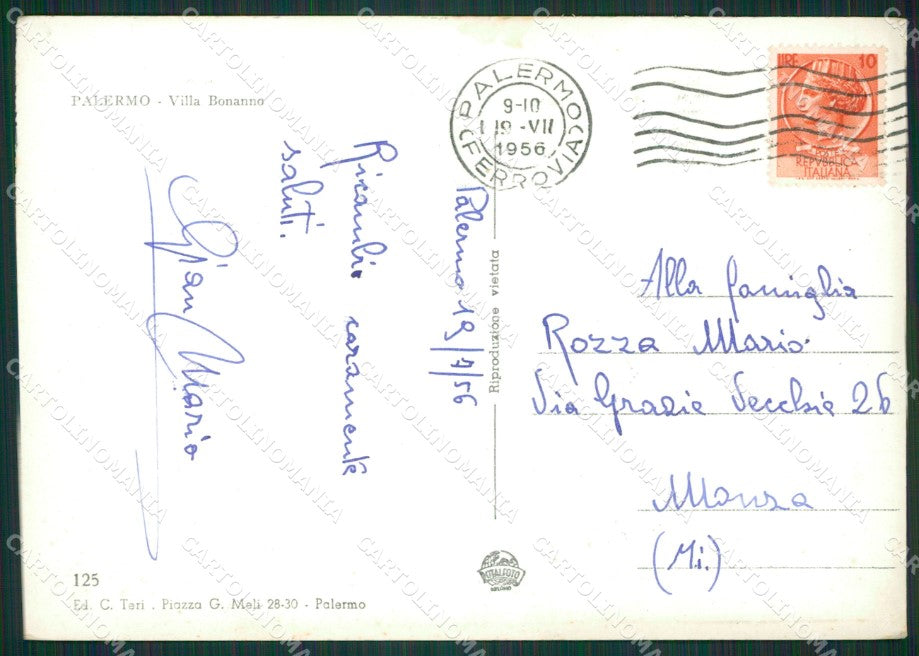 PALERMO - Villa Bonanno
PALERMO
9-10
19-VII
1956
(FERROVIA)
LIRE 10
POSTE
REPVBBLICA
ITALIANA
Palermo 19/7/56
Ricambio caramente
saluti.
Gian Mario
Riproduzione vietata
Alla famiglia
Rozza Mario
Via Grazie Vecchie 26
Monza
(Mi.)
ITALFOTO
125
Ed. C. Teri . Piazza G. Meli 28-30 - Palermo
CARTOLINOMANIA